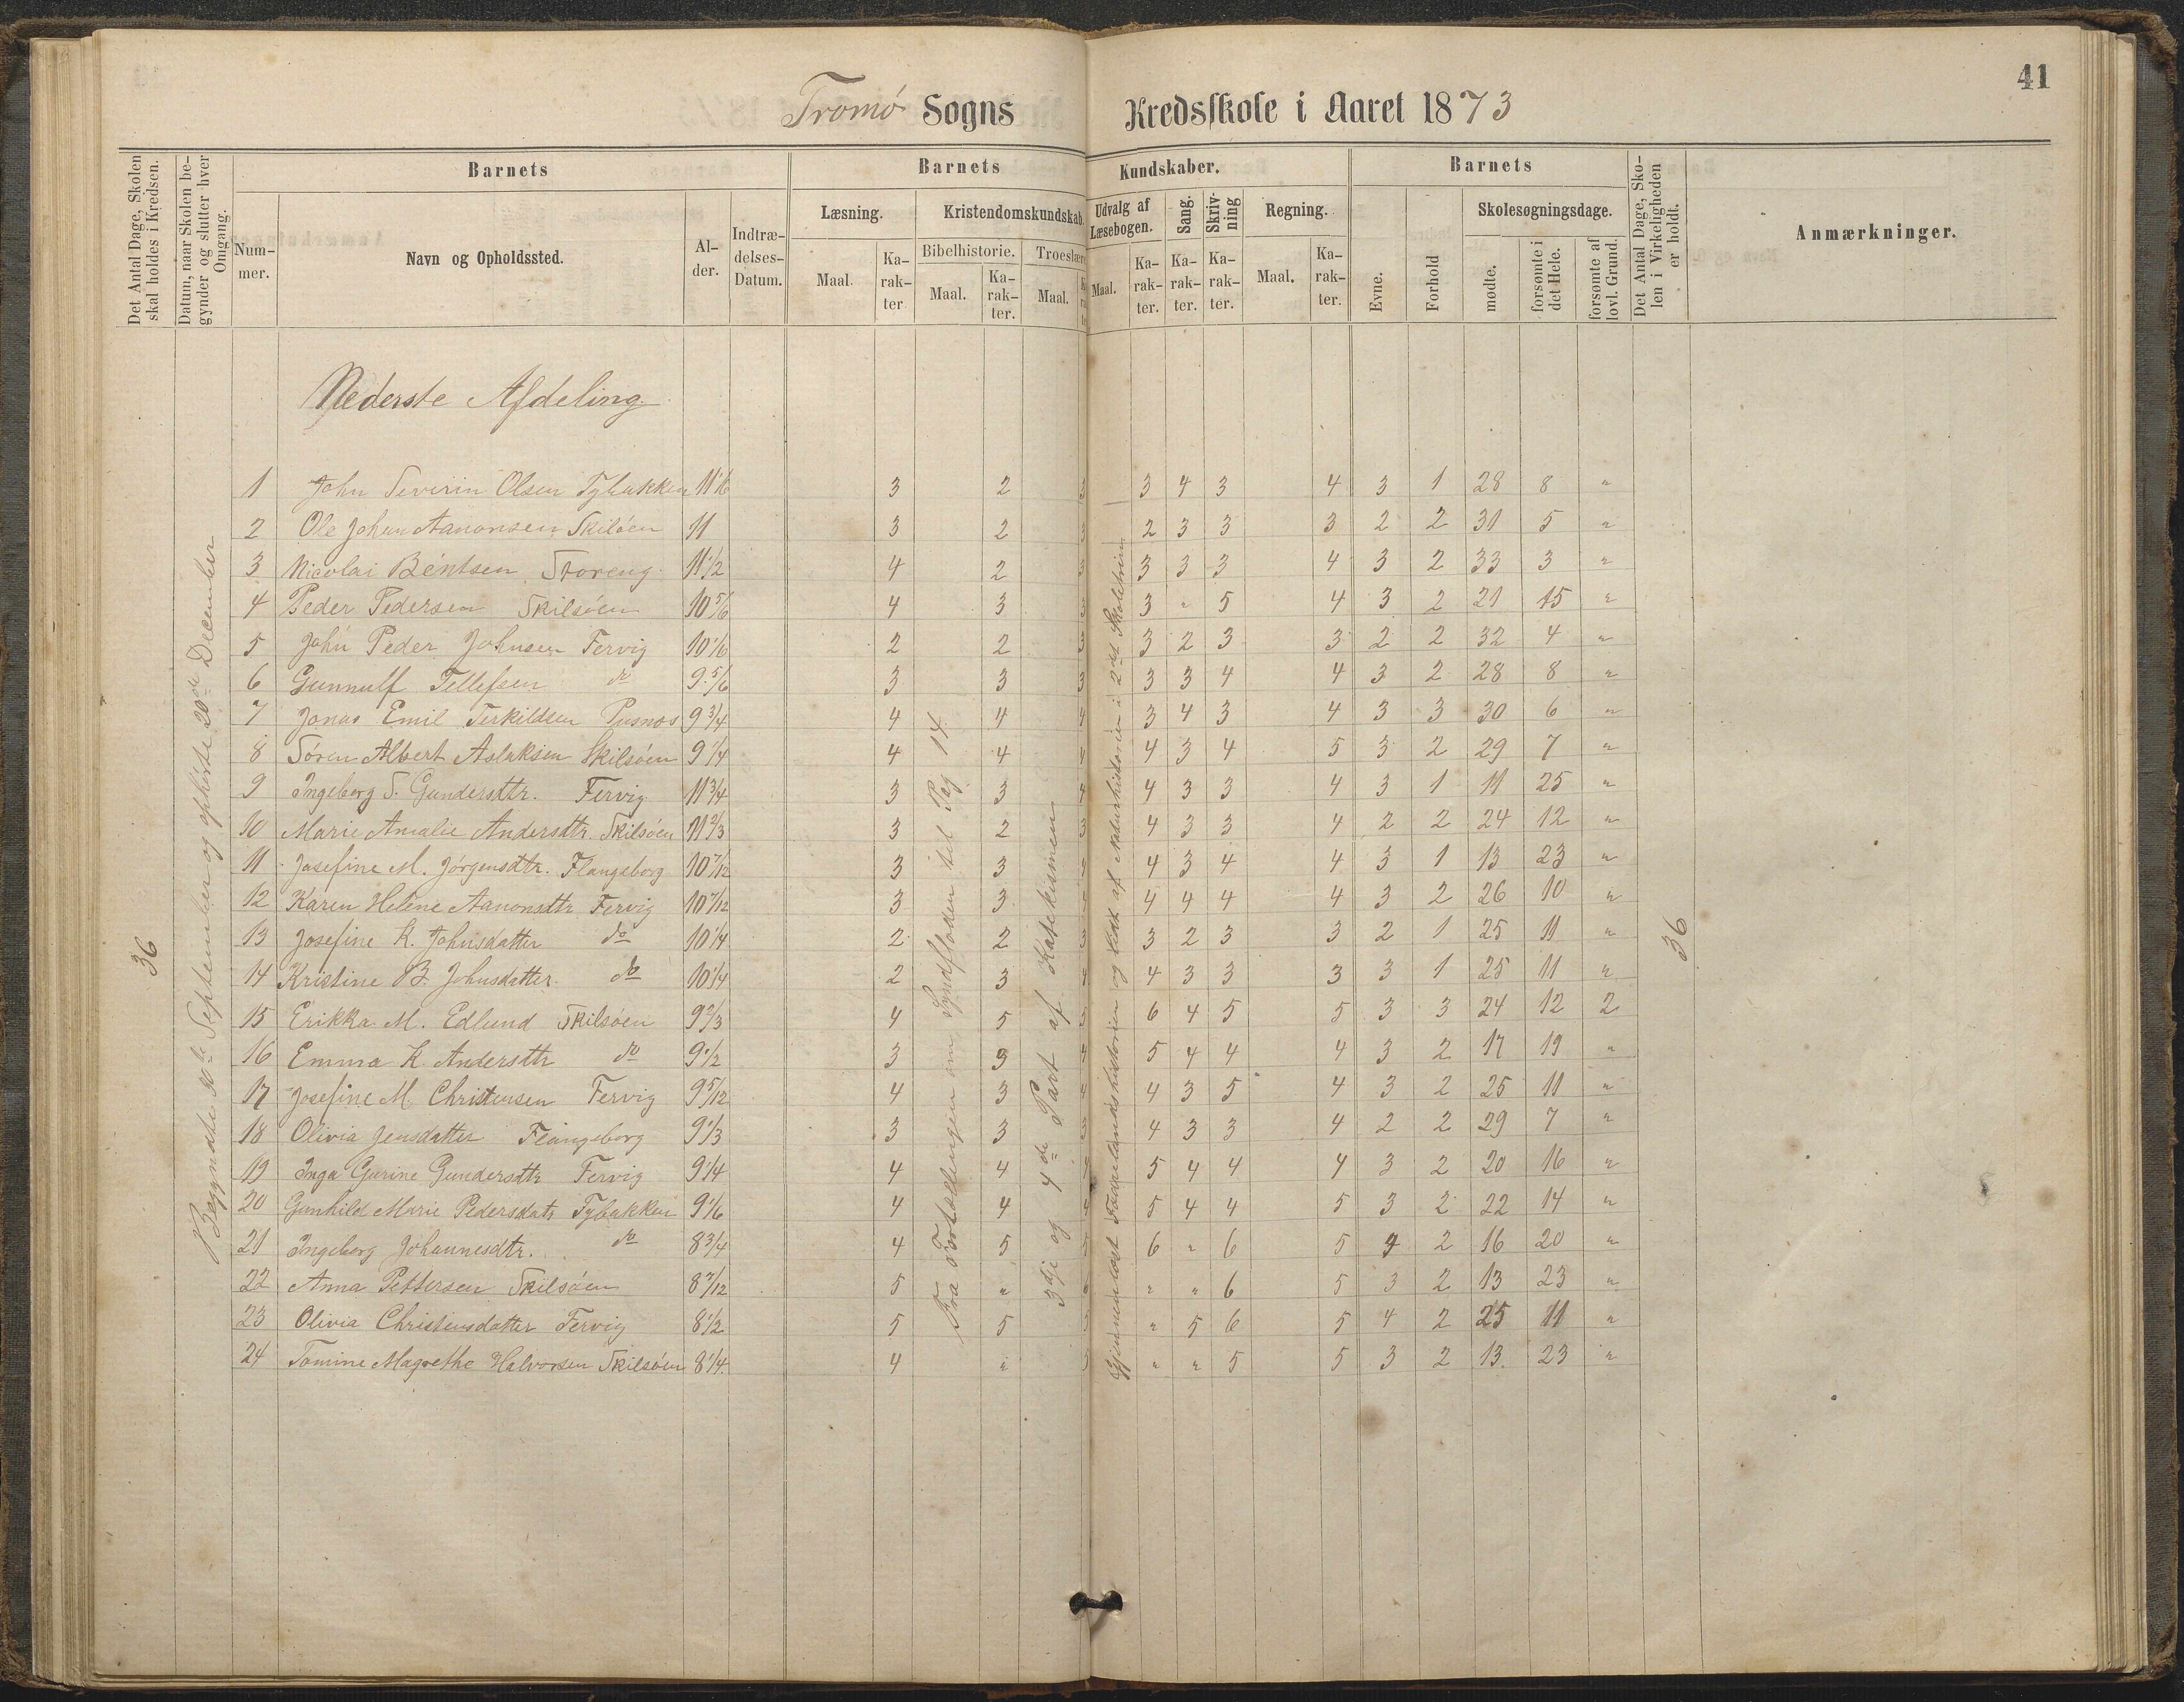 41
Tromø Sogns Kredsskole i Aaret 1873
Det Antal Dage, Skolen skal holdes i Kredsen.
Datum, naar Skolen begynder og slutter hver Omgang.
Barnets
Barnets Kundskaber.
Barnets
Det Antal Dage, Skolen i Virkeligheden er holdt.
Anmærkninger.
Nummer.
Navn og Opholdssted.
Alder.
Indtrædelses-Datum.
Læsning.
Kristendomskundskab.
Udvalg af Læsebogen.
Sang.
Skrivning
Regning.
Evne.
Forhold
Skolesøgningsdage.
Bibelhistorie.
Troeslære
Maal. Karakter Maal. Karakter. Maal. Maal. Karakter. Karakter. Karakter. Maal. Karakter.
mødte. forsømte i det Hele. forsømte af lovl. Grund.
Nederste Afdeling
1 John Severin Olsen Tybakken 11 1/6 3 2 3 3 4 3 4 3 1 28 8 "
2 Ole Johan Aanonsen Skilsøen 11 3 2 3 2 3 3 3 2 2 31 5 "
3 Nicolai Bentsen Storeng 11 1/2 4 2 3 3 3 3 4 3 2 33 3 "
4 Peder Pedersen Skilsøen 10 5/6 4 3 3 3 " 5 4 3 2 21 15 "
5 John Peder Johnsen Fervig 10 1/6 2 2 3 3 2 3 3 2 2 32 4 "
6 Gunnulf Tellefsen do 9 5/6 3 3 3 3 3 4 4 3 2 28 8 "
7 Jonas Emil Terkildsen Pusnes 9 3/4 4 4 4 3 4 3 4 3 3 30 6 "
8 Søren Albert Aslaksen Skilsøen 9 1/4 4 4 4 4 3 4 5 3 2 29 7 "
9 Ingeborg S. Gundersdtr. Fervig 11 3/4 3 3 4 4 3 3 4 3 1 11 25 "
10 Marie Amalie Andersdtr. Skilsøen 11 2/3 3 2 3 4 3 3 4 2 2 24 12 "
11 Josefine M. Jørgensdtr. Flangeborg 10 7/12 3 3 4 4 3 4 4 3 1 13 23 "
12 Karen Helene Aanonsdtr Fervig 10 7/12 3 3 4 4 4 4 3 2 26 10 "
13 Josefine K. Johnsdatter do 10 1/4 2 2 3 3 2 3 3 2 1 25 11 "
14 Kristine B. Johnsdatter do 10 1/4 2 3 4 4 3 3 3 3 1 25 11 "
15 Erikka M. Edlund Skilsøen 9 2/3 4 5 6 4 5 5 3 3 24 12 2
16 Emma K. Andersdtr do 9 1/2 3 3 4 5 4 4 4 3 2 17 19 "
17 Josefine M. Christensen Fervig 9 5/12 4 3 4 4 3 5 4 3 2 25 11 "
18 Olivia Jensdatter Flangeborg 9 1/3 3 3 3 4 3 3 4 2 2 29 7 "
19 Inga Gurine Gundersdtr Fervig 9 1/4 4 4 5 4 4 4 3 2 20 16 "
20 Gunhild Marie Pedersdatr Tybakken 9 1/6 4 4 5 4 4 5 3 2 22 14 "
21 Ingeborg Johannesdtr. do 8 3/4 4 5 6 " 6 5 4 2 16 20 "
22 Anna Pettersen Skilsøen 8 7/12 5 " " " 6 5 3 2 13 23 "
23 Olivia Christensdatter Fervig 8 1/2 5 5 " 5 6 5 4 2 25 11 "
24 Tomine Magrethe Halvorsen Skilsøen 8 1/4 4 " " " 5 5 3 2 13 23 "
36
Begyndte September og ophørte 20de December
Fra Fortællingen om Syndfloden til Pag 14
3dje og 4de Part af Katekismen
Gjennemlæst Fædrelandshistorien og lidt af Naturhistorien i 2det Skoletrin
36